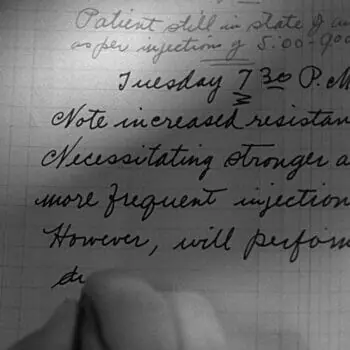 Patient still in state of
as per injection of 5:00-9:00
Tuesday 7 30 P.M
Note increased resistan
Necessitating stronger a
more frequent injection
However, will perform